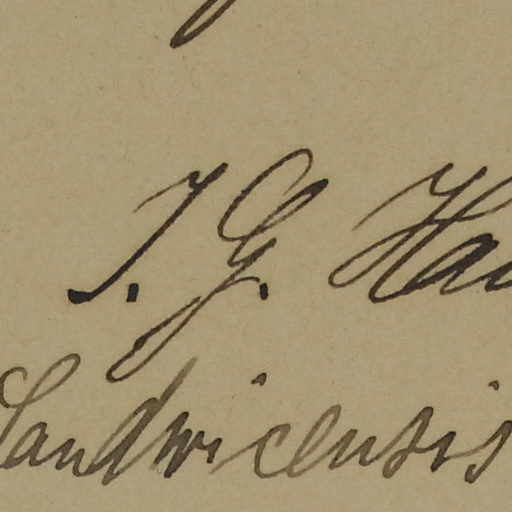 I. G. Hau
Sandwicensis